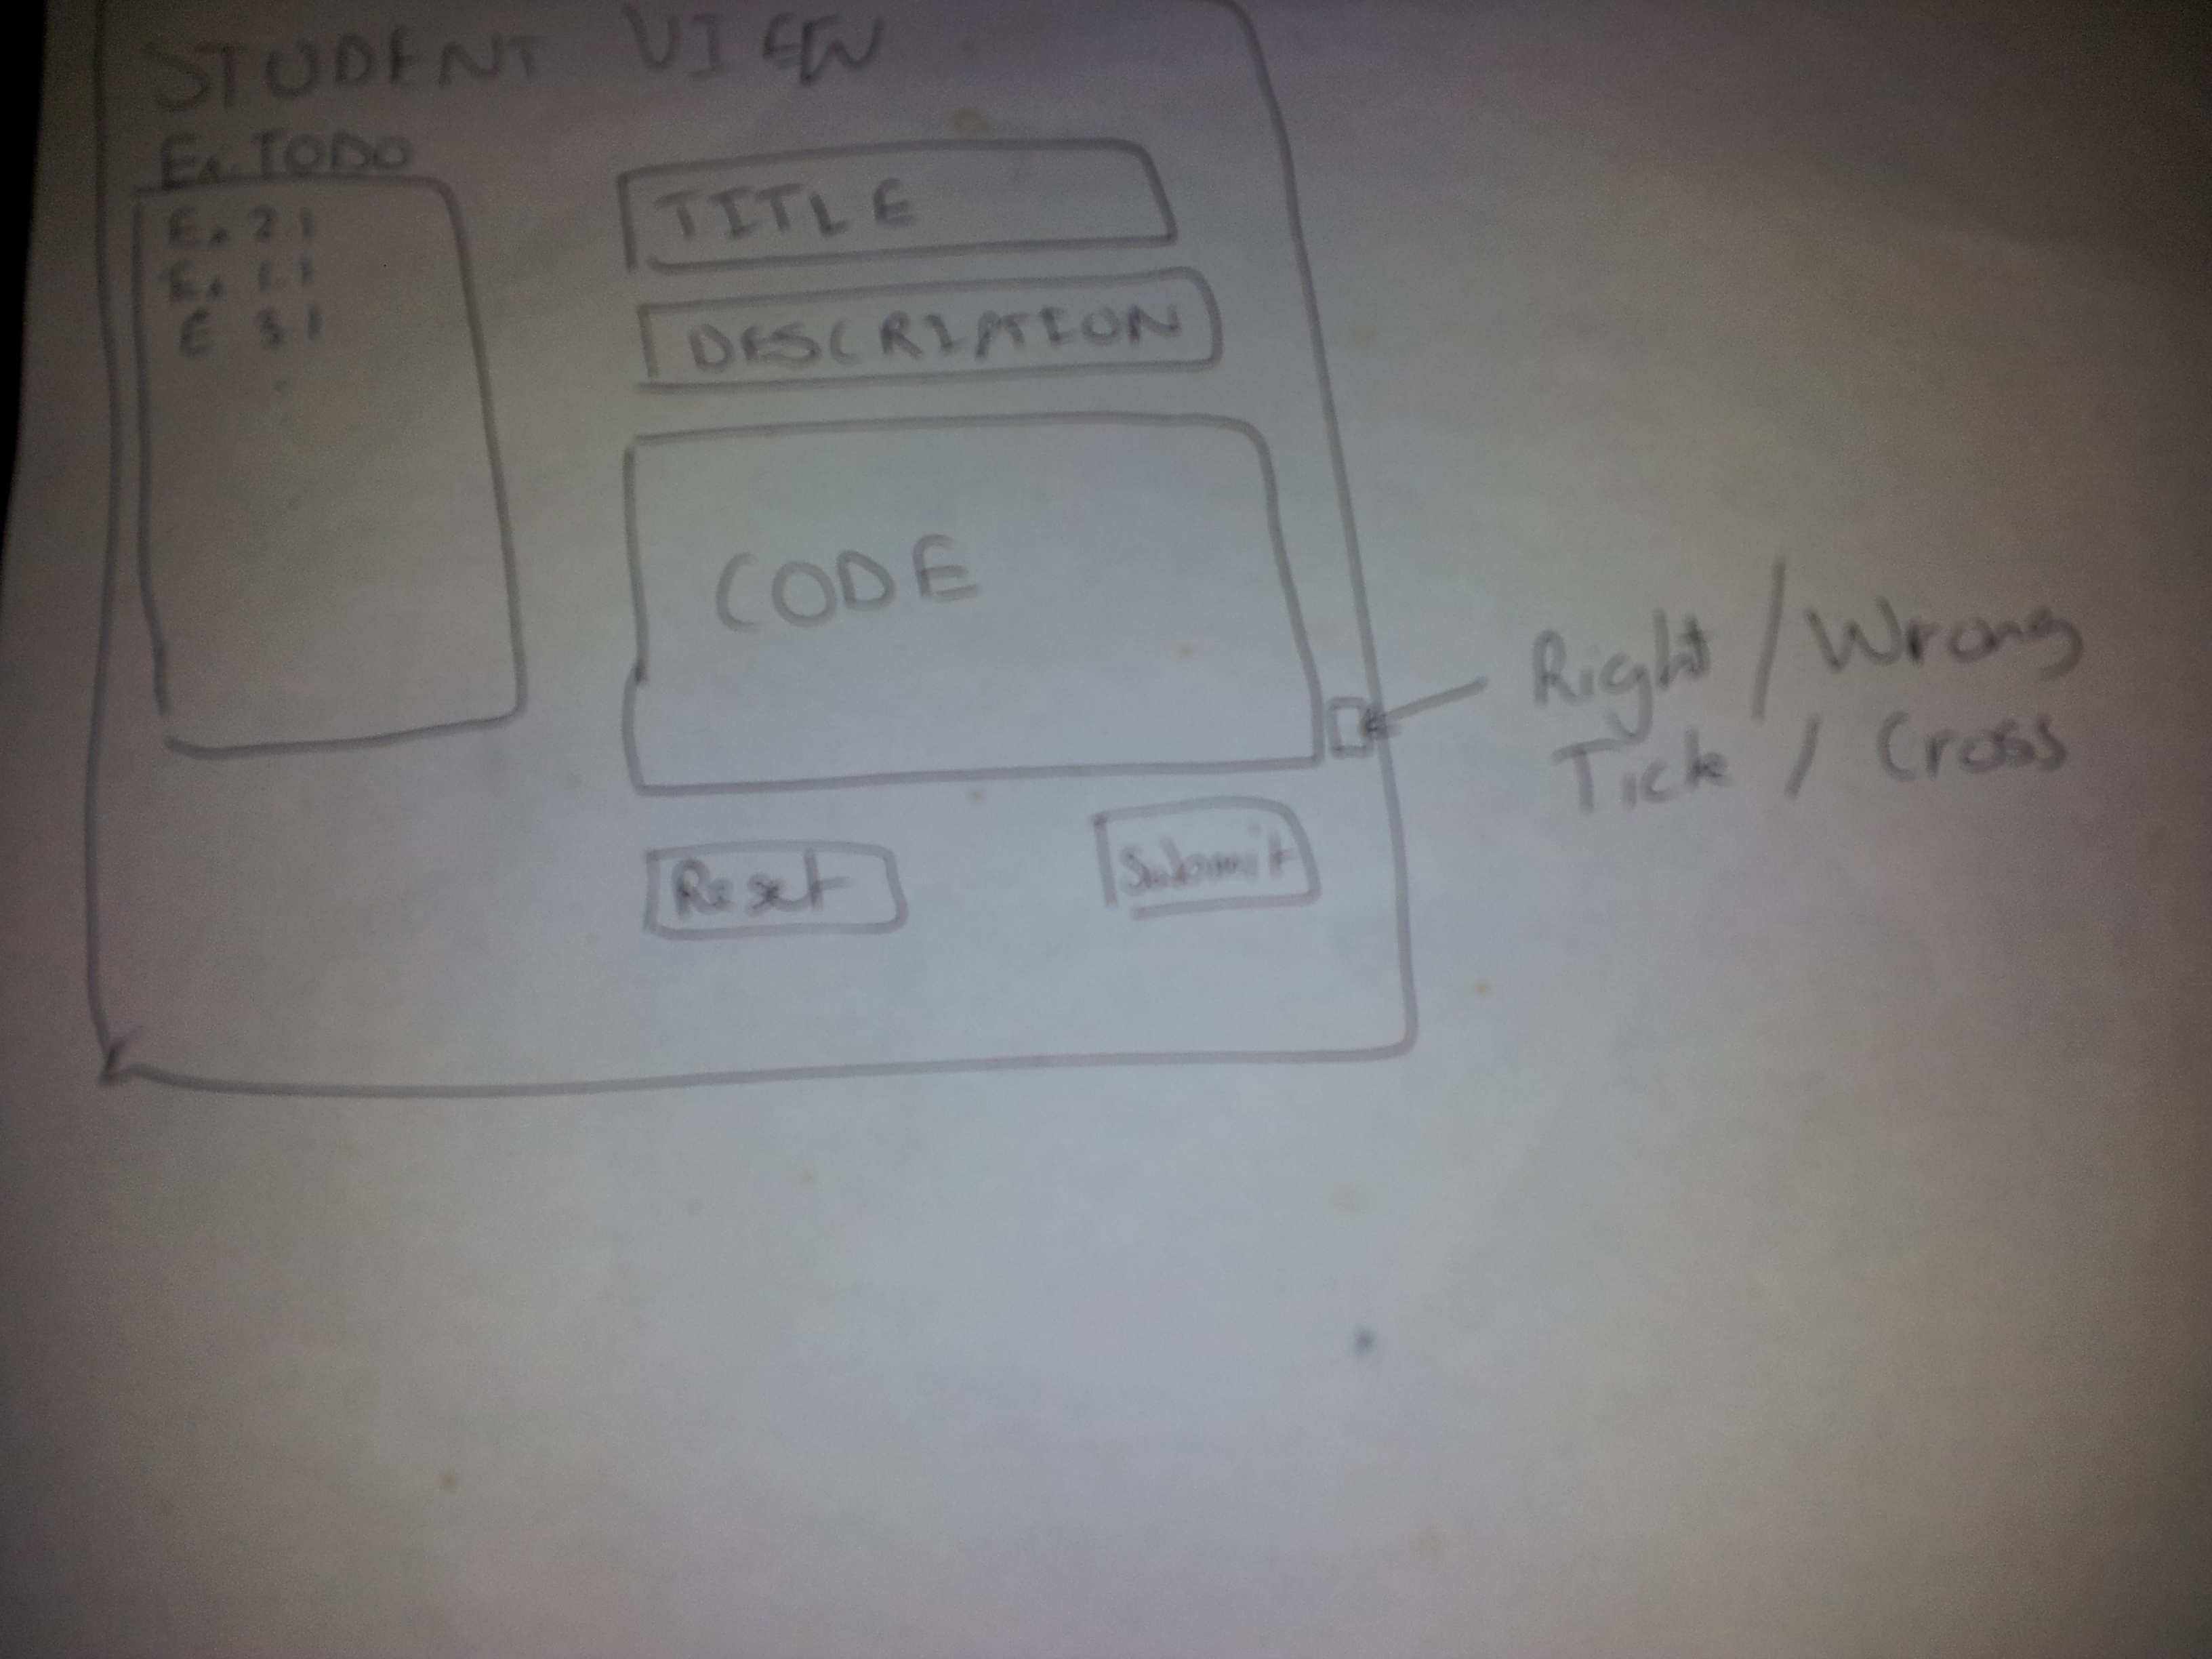 STUDENT VIEW
Ex TODO
E. 2.1
E. 1.1
E 3.1
TITLE
DESCRIPTION
CODE
Reset
Submit
Right / Wrong
Tick / Cross